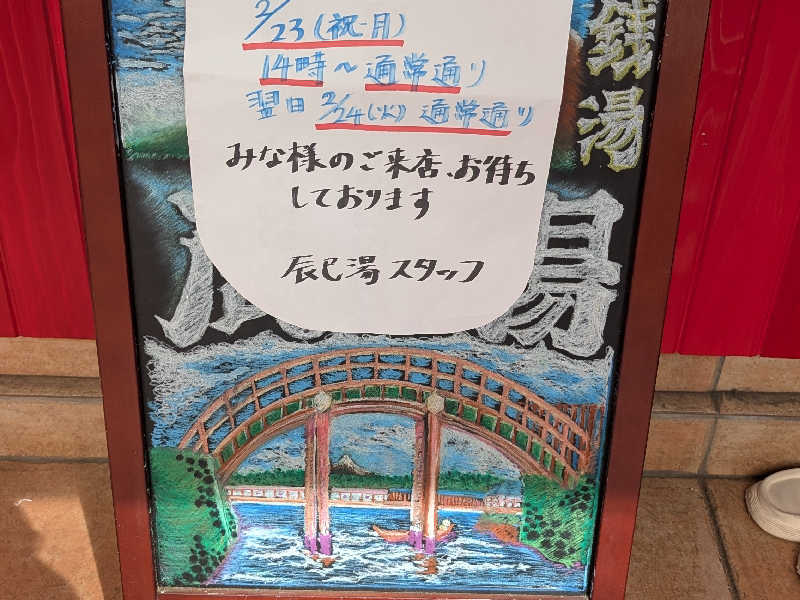 2/23(祝・月)
14時～通常通り
翌日 2/24(火)通常通り
みな様のご来店、お待ち
しております
辰巳湯スタッフ
銭湯
湯